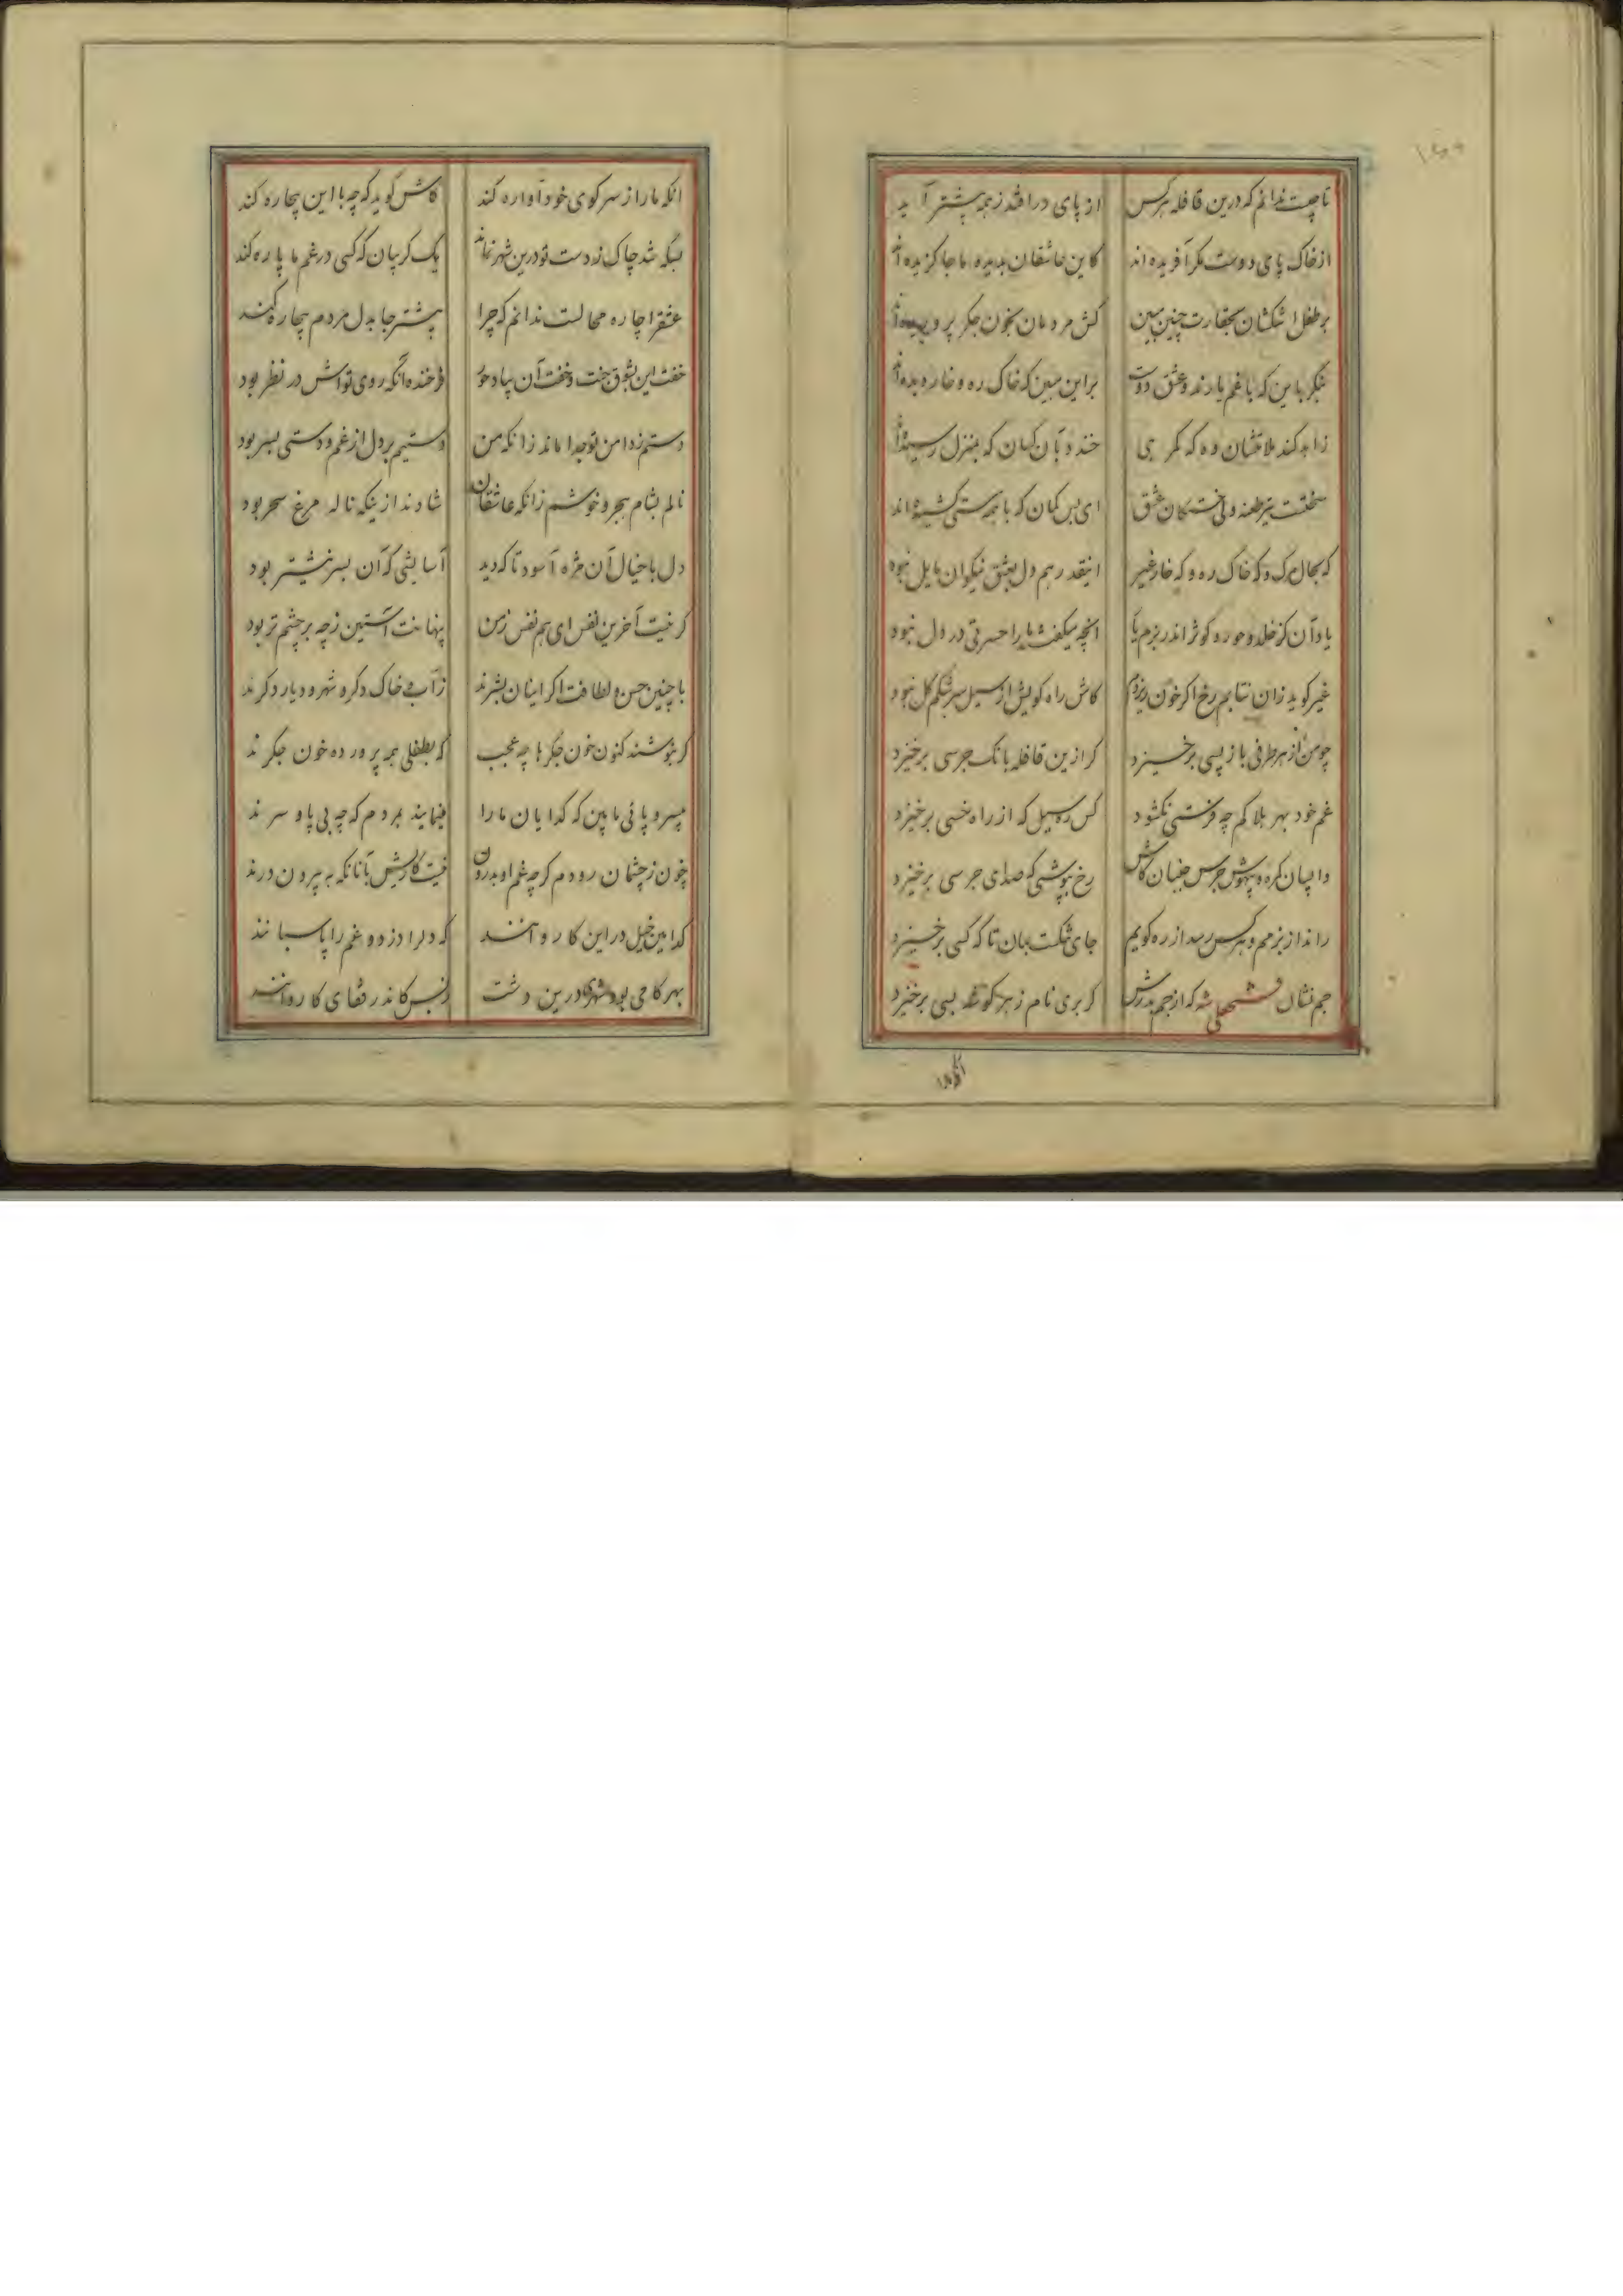 تا چیست ندانم که درین قافله هر کس از پای در افتد ز همه پیشتر آید
از خاک پای دوست مگر آفریده اند کاین عاشقان بدیده ما جا گزیده اند
بر طفل اشکشان بحقارت چنین مبین کش مردمان بخون جگر پروریده اند
منگر باین که با غم یارند و عشق دوست بر این ببین که خاک ره و خار دیده اند
زاهد کند ملامتشان وه که گمرهی خندد بآن کسان که بمنزل رسیده اند
سختست تیر طعنه ولی خستگان عشق ای بس کمان که با همه سستی کشیده اند
که بحال مرگ و که خاک ره و که خار غیر اینقدر هم دل بعشق نیکوان مایل نبود
یاد آن کز خلد و حور و کوثر اندر بزم یار آنچه میگفتند ما را حسرتی در دل نبود
غیر گوید زان نتابم رخ اگر خون ریزدم کاش راه کویش از سیل سرشکم گل نبود
چو من از هر طرفی باز پسی برخیزد گر ازین قافله بانگ جرسی برخیزد
غم خود بهر بلا کم چه فرستی نکشود کس رسیل که از راه خسی برخیزد
و بیهوش جرس جنبان کاش رخ بپوشی که صدای جرسی برخیزد
راند از بزمم و هر کس رسد از ره گویم جای تنگست بمان تا که کسی برخیزد
جم نشان فتحعلی شه که از جم بدرش گر بری نام ز هر گوشه بسی برخیزد
آنکه ما را
آنکه ما را از سر کوی خود آواره کند کاش گوید که چه با این بیچاره کند
بسکه شد چاک ز دست تو درین شهر نماند یک گریبان که کسی در غم ما پاره کند
عشقرا چاره محالست ندانم که چرا بیشتر جا بدل مردم بیچاره کند
خفت این بشوق جنت و خفت آن بیاد حور فرخنده آنکه روی تواش در نظر بود
دستم ز دامن تو جدا ماند زانکه من دستیم بر دل از غم و دستی بسر بود
نالم بشام هجر و خوشم زانکه عاشقان شادند ازینکه ناله مرغ سحر بود
دل با خیال آن مژه آسود تا که دید آسایشی که آن بسر نیشتر بود
گر نیست آخرین نفس ای هم نفس ز من پنهانت آستین ز چه بر چشم تر بود
با چنین حسن و لطافت اگر اینان بشرند ز آب و خاک دگر و شهر و دیار دگرند
گر بنوشند کنون خون جگرها چه عجب که بطفلی همه پرورده خون جگرند
بیسر و پائی ما بین که گدایان ما را مینمایند بمردم که چه بی پا و سرند
خون ز چشمان رودم گر چه غم او بدرون نیست کاریش بآنانکه به بیرون درند
کدامین خیل در این کاروانند که دلرا دزد و غم را پاسبانند
بهر گامی بود شهری درین دشت ز بس کاندر قفای کاروانند